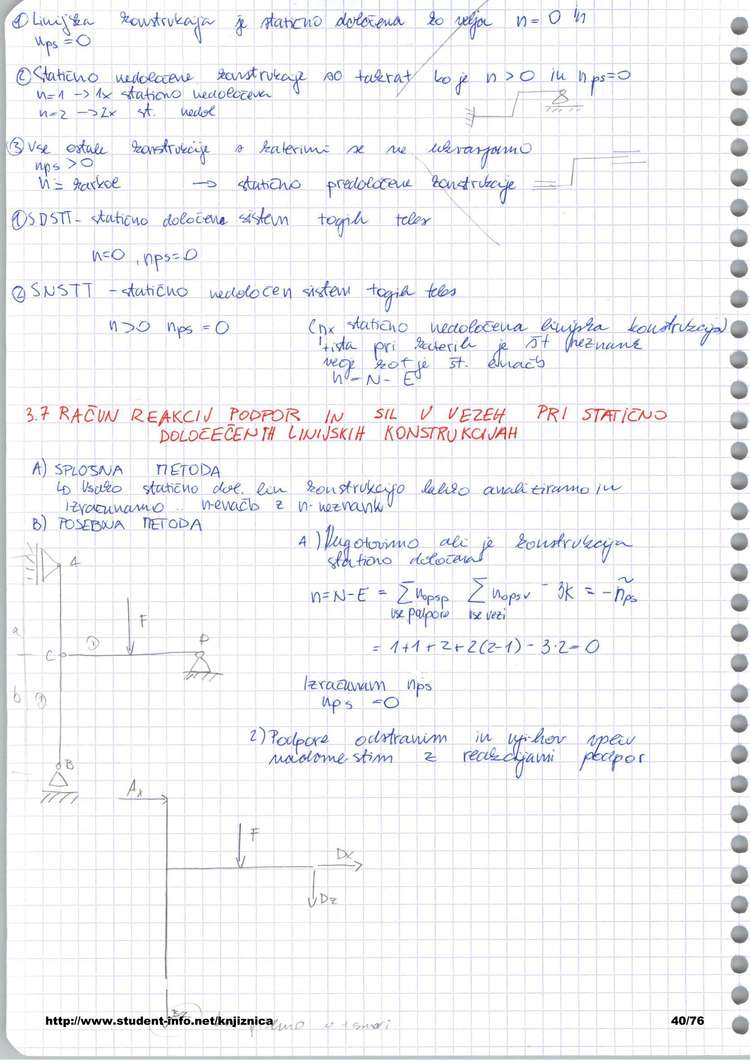 ① Linijska konstrukcija je statično določena ko velja n = 0 in
nps = 0
② Statično nedoločene konstrukcije so takrat ko je n > 0 in nps = 0
n=1 → 1x statično nedoločena
n=2 → 2x st. nedol
③ Vse ostale konstrukcije s katerimi se ne ukvarjamo
nps > 0
n = karkol → statično predoločene konstrukcije
① SDSTT - statično določena sistem togih teles
n=0, nps=0
② SNSTT - statično nedoločen sistem togih teles
n>0 nps = 0
(nx statično nedoločena linijska konstrukcija)
tista pri katerih je št neznank
večje kot je št. enačb
n - N - E
3.7 RAČUN REAKCIJ PODPOR IN SIL V VEZEH PRI STATIČNO
DOLOČEČENIH LINIJSKIH KONSTRUKCIJAH
A) SPLOŠNA METODA
↳ Vsako statično dol. lin konstrukcijo lahko analiziramo in
izračunamo n-enačb z n-neznank
B) POSEBNA METODA
1) Ugotovimo ali je konstrukcija
statično določena
n=N-E = ∑nopsp ∑nopsv - 3K = -ñps
vse podpore vse vezi
= 1+1+2+2(2-1) - 3·2 = 0
Izračunam nps
nps = 0
2) Podpore odstranim in njihov vpliv
nadomestim z reakcijami podpor
A
F
a
C
①
D
b
B
Ax
F
Dx
Dz
Bz
v + smeri
http://www.student-info.net/knjiznica
40/76